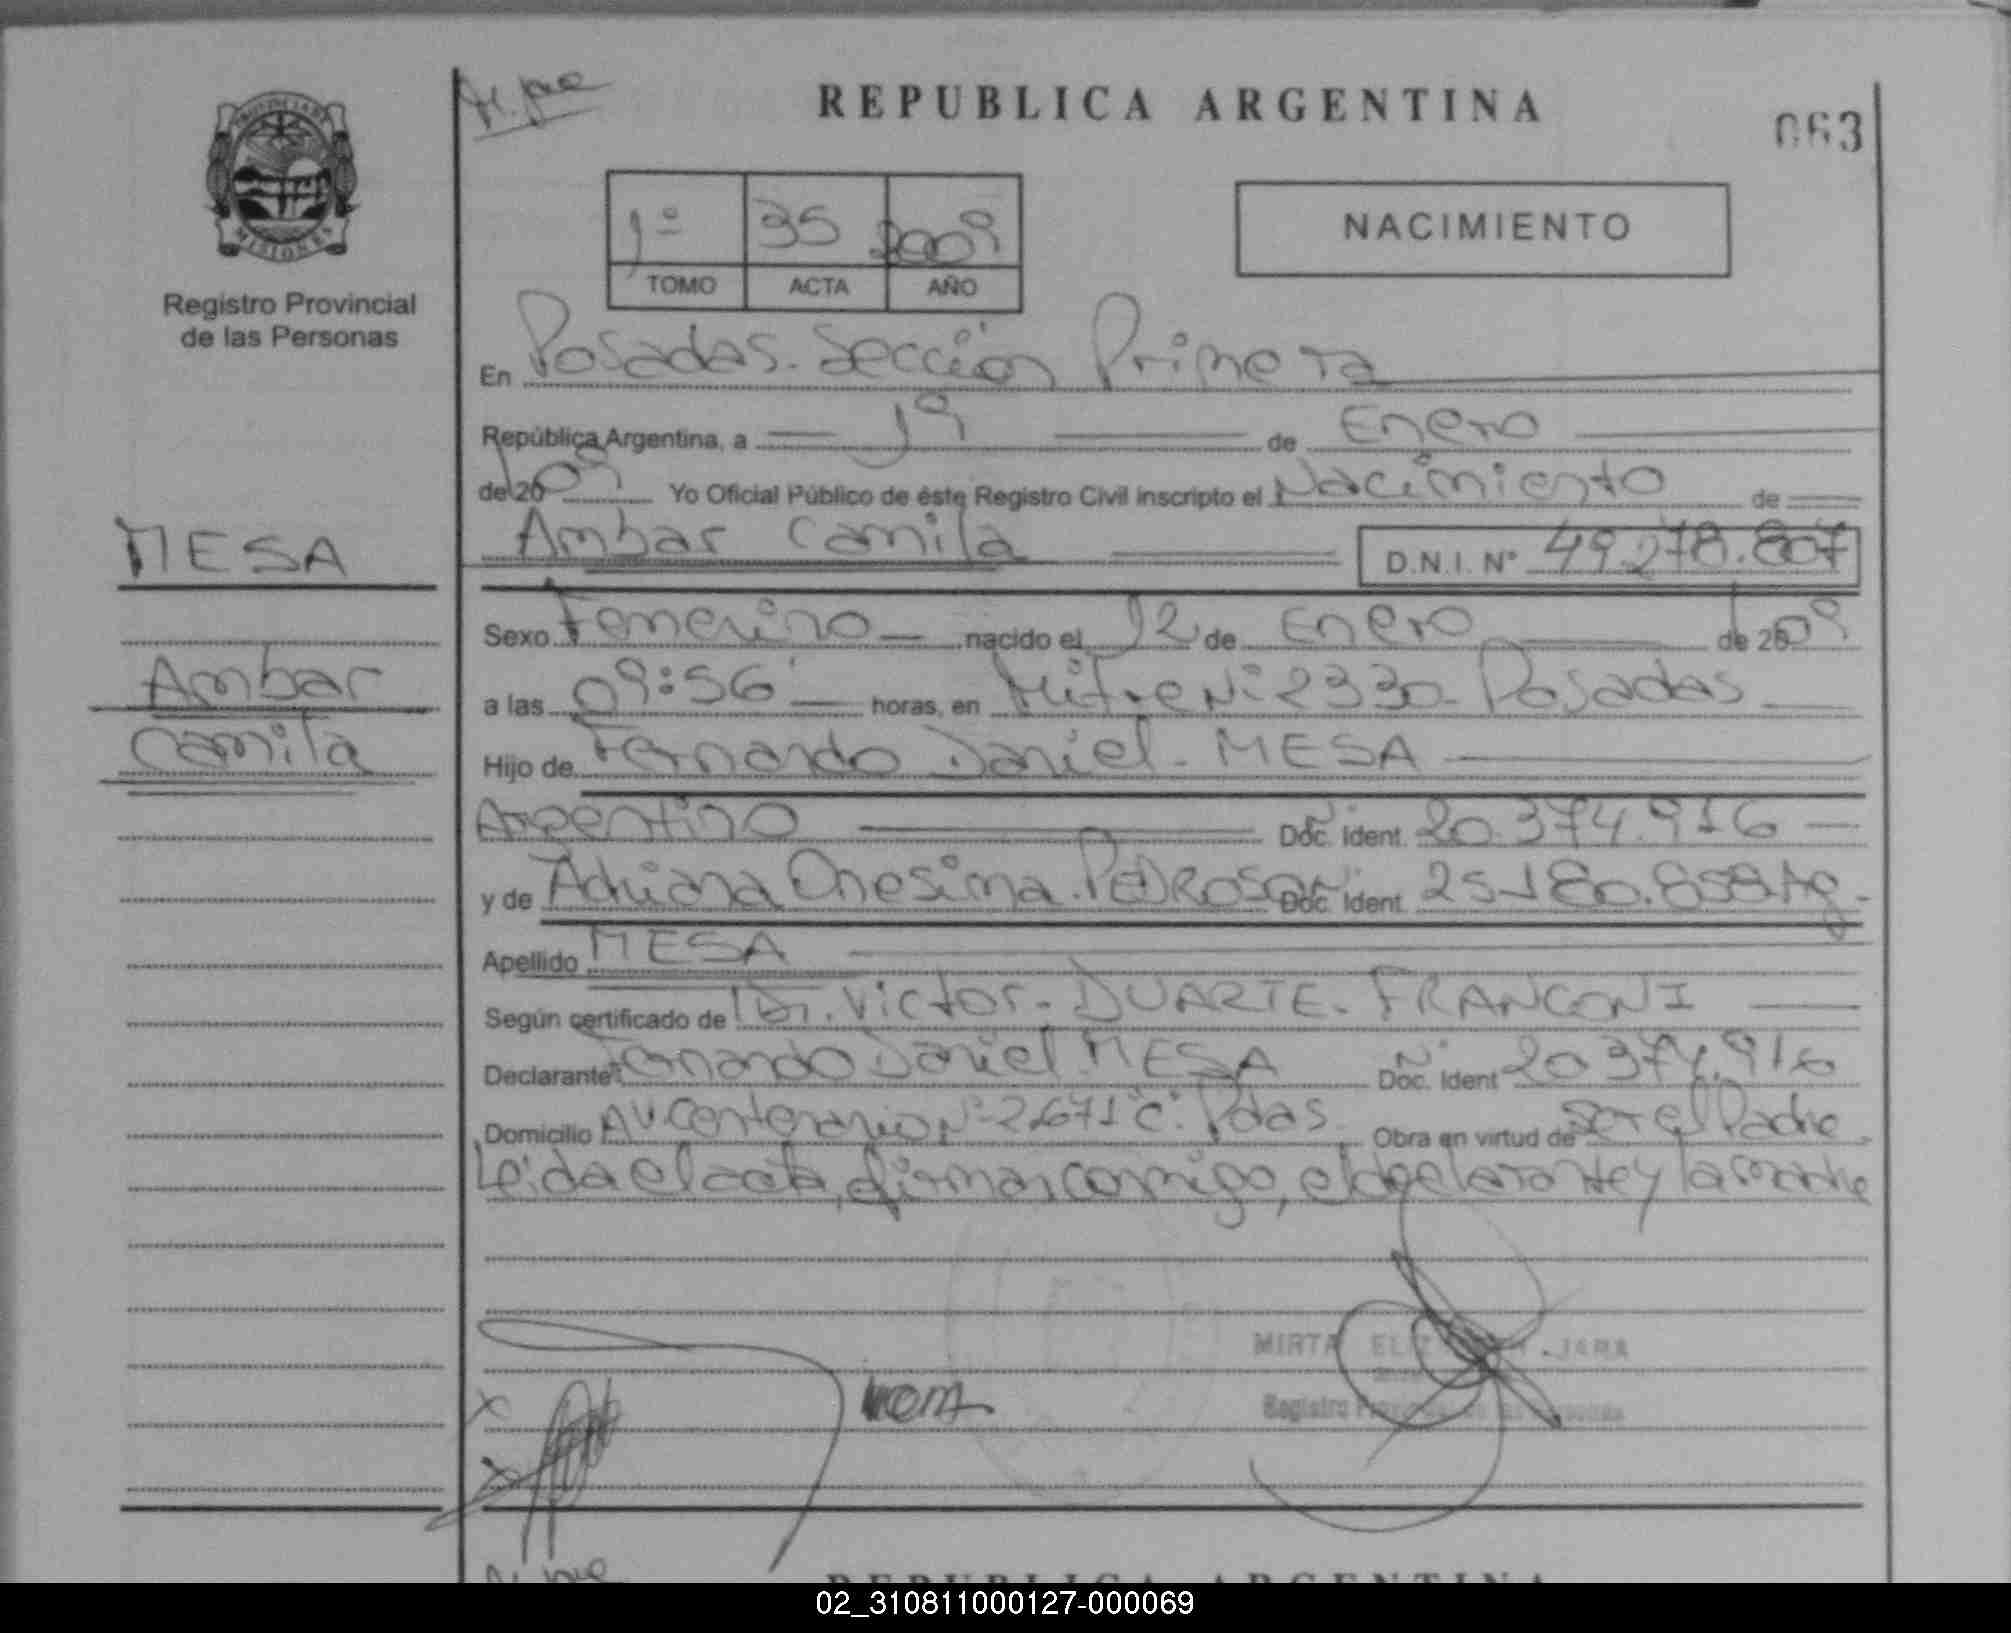 REPUBLICA ARGENTINA
063
1º 35 2009
TOMO ACTA AÑO
NACIMIENTO
PROVINCIA DE MISIONES
Registro Provincial
de las Personas
En Posadas. Sección Primera
República Argentina, a 19 de Enero
de 2009 Yo Oficial Público de éste Registro Civil inscripto el Nacimiento de
Ambar Camila D.N.I. Nº 49.278.807
MESA
Ambar
Camila
Sexo Femenino nacido el 12 de Enero de 2009
a las 09:56' horas, en Mitre Nº 2330 - Posadas
Hijo de Fernando Daniel - MESA
Argentino Nº Doc. Ident. 20.374.916
y de Adriana Onesima. PEDROSO Nº Doc. Ident. 25.180.858 Arg.
Apellido MESA
Según certificado de Dr. Victor - DUARTE - FRANCONI
Declarante Fernando Daniel MESA Nº Doc. Ident 20.374.916
Domicilio AV. Centenario Nº 2671 "C". Pdas. Obra en virtud de Ser el Padre.
Leida el acta, firman conmigo, el declarante y la madre
MIRTA JARA
Registro
REPUBLICA ARGENTINA
02_310811000127-000069